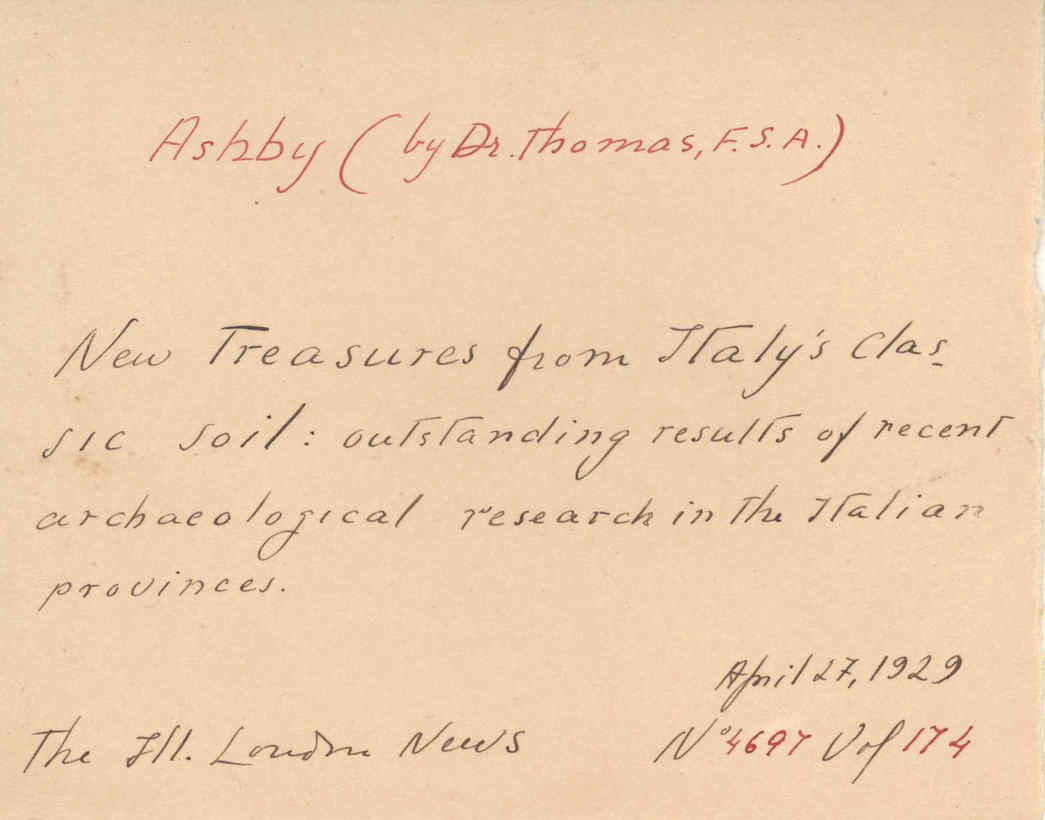 Ashby (by Dr. Thomas, F.S.A.)
New Treasures from Italy's Clas-
sic soil: outstanding results of recent
archaeological research in the Italian
provinces.
April 27, 1929
The Ill. London News Nº 4697 Vol 174